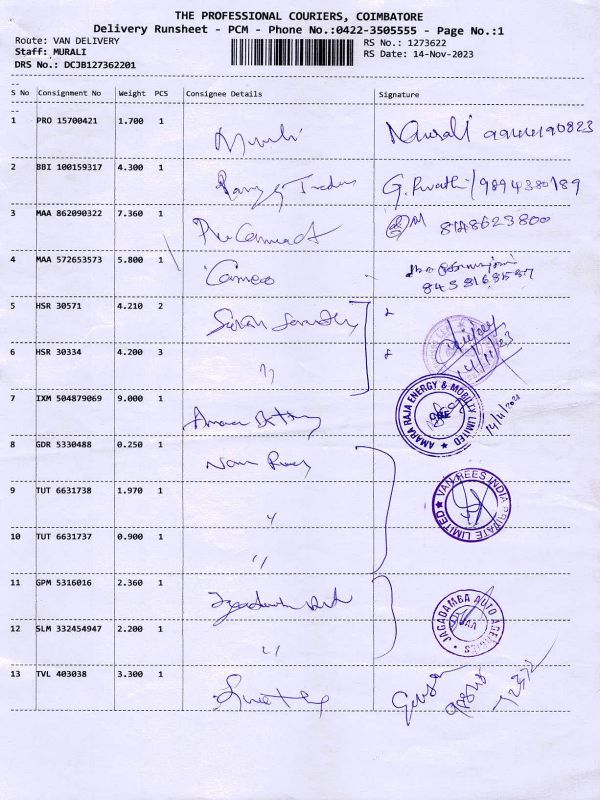 THE PROFESSIONAL COURIERS, COIMBATORE
Delivery Runsheet - PCM - Phone No.:0422-3505555 - Page No.:1
Route: VAN DELIVERY
RS No.: 1273622
Staff: MURALI
RS Date: 14-Nov-2023
DRS No.: DCJB127362201
S No Consignment No Weight PCS Consignee Details Signature
1 PRO 15700421 1.700 1 Murali
2 BBI 100159317 4.300 1 Traders G. 9894380189
3 MAA 862090322 7.360 1 8148623800
4 MAA 572653573 5.800 1 Cameo
5 HSR 30571 4.210 2
6 HSR 30334 4.200 3 14/11/23
7 IXM 504879069 9.000 1 AMARA RAJA ENERGY & MOBILITY LIMITED 14/11/2023
8 GDR 5330488 0.250 1
9 TUT 6631738 1.970 1 VAN REES INDIA PRIVATE LIMITED
10 TUT 6631737 0.900 1
11 GPM 5316016 2.360 1
12 SLM 332454947 2.200 1 JAGADAMBA AUTO AGENCIES
13 TVL 403038 3.300 1